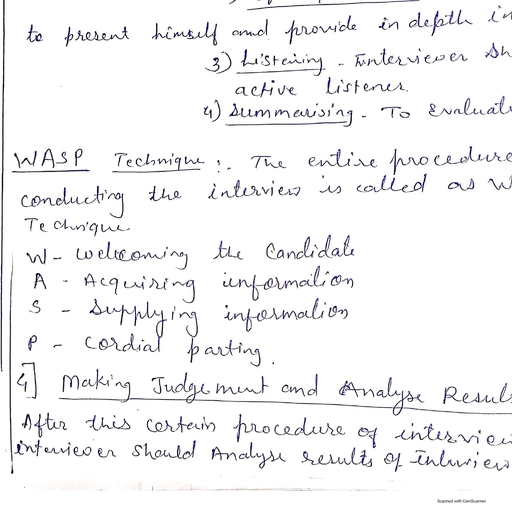 to present himself and provide in depth in
3) Listening - Interviewer Sh
active listener.
4) Summarising - To Evaluat
WASP Technique :- The entire procedure
conducting the interview is called as W
Technique
W - Welcoming the Candidate
A - Acquiring information
S - Supplying information
P - Cordial parting.
4] Making Judgement and Analyse Resul
After this certain procedure of intervie
interviewer should Analyse results of Interview
Scanned with CamScanner